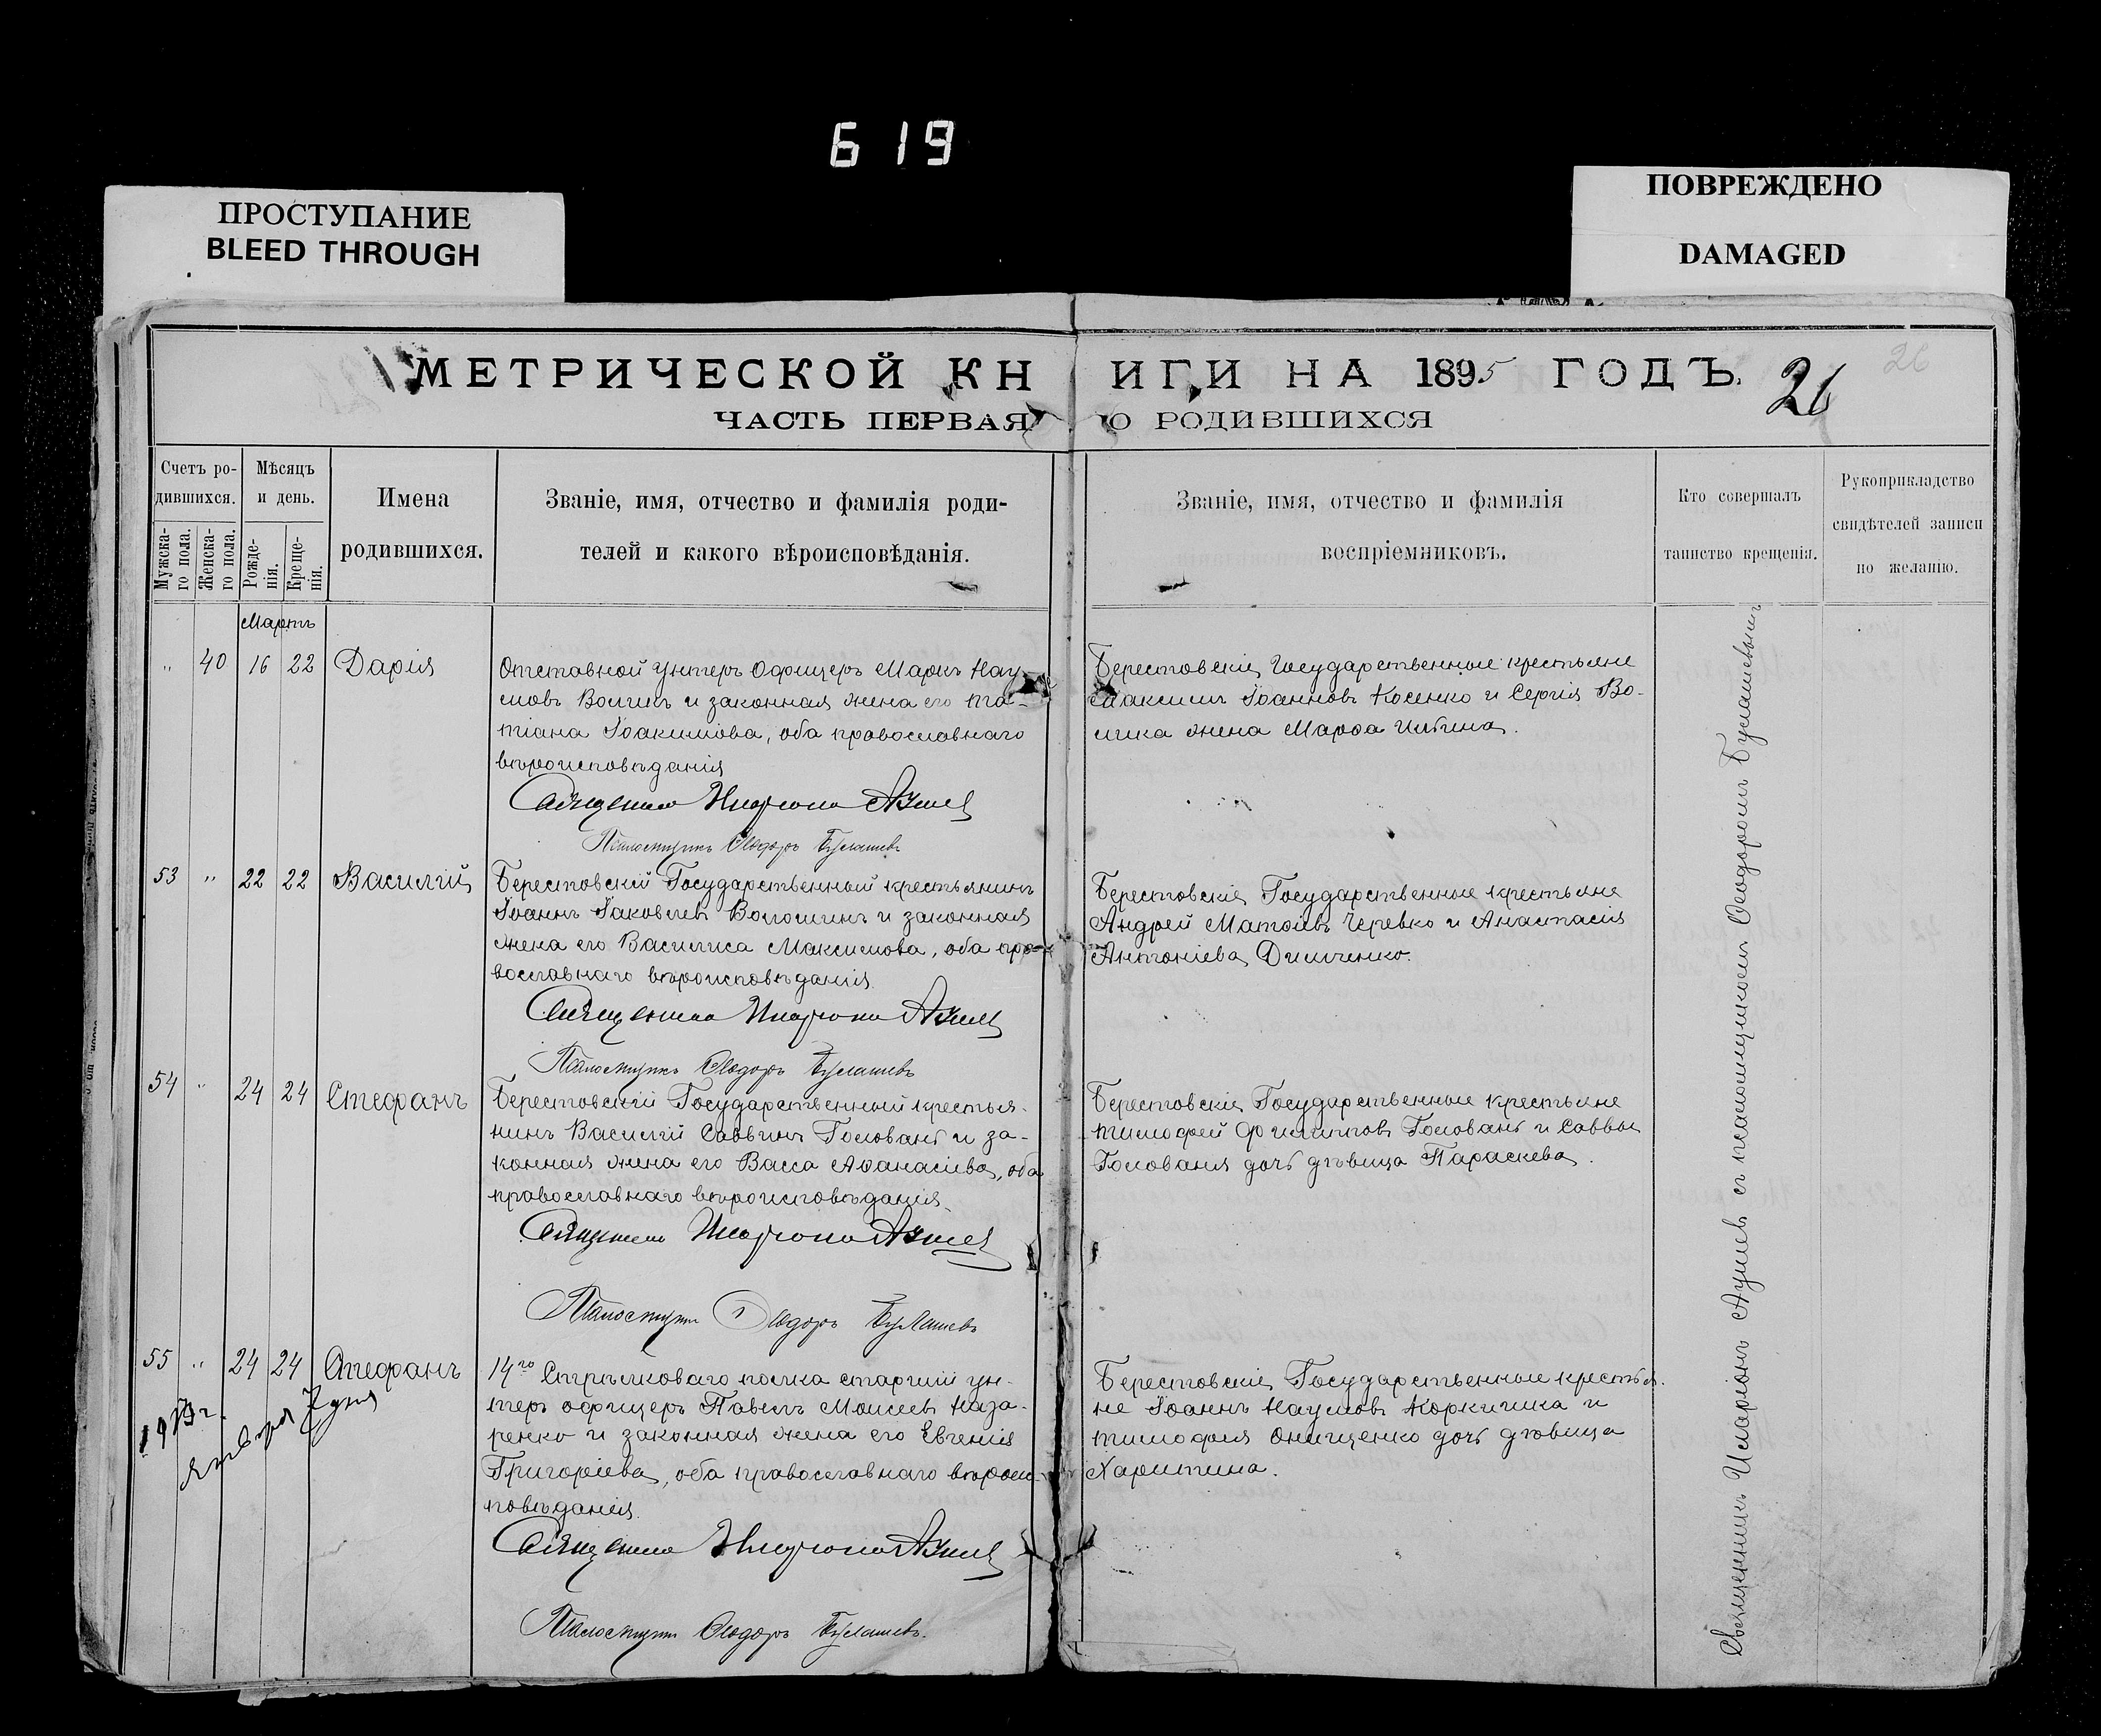 6 19
ПРОСТУПАНИЕ
BLEED THROUGH
ПОВРЕЖДЕНО
DAMAGED
МЕТРИЧЕСКОЙ КНИГИ НА 1895 ГОДЪ.
26
26
ЧАСТЬ ПЕРВАЯ О РОДИВШИХСЯ
Счетъ ро-
дившихся.
Мужска-
го пола.
Женска-
го пола.
Мѣсяцъ
и день.
Рожде-
нія.
Креще-
нія.
Имена
родившихся.
Званіе, имя, отчество и фамилія роди-
телей и какого вѣроисповѣданія.
Званіе, имя, отчество и фамилія
воспріемниковъ.
Кто совершалъ
таинство крещенія.
Рукоприкладство
свидѣтелей записи
по желанію.
Мартъ
" 40 16 22 Дарія
Отставной унтеръ Офицеръ Маркъ Нау-
мовъ и законная жена его Та-
тіана Іоакимова, оба православнаго
вѣроисповѣданія
Священникъ Иларіонъ
Псаломщикъ Ѳеодоръ Булашевъ
Берестовскіе Государственные крестьяне
Максимъ Іоанновъ Косенко и Сергія Во-
лика жена Марѳа Ильина.
53 " 22 22 Василій
Берестовскій Государственный крестьянинъ
Іоаннъ Іаковлевъ Волошинъ и законная
жена его Василиса Максимова, оба пра-
вославнаго вѣроисповѣданія.
Священникъ Иларіонъ
Псаломщикъ Ѳеодоръ Булашевъ
Берестовскіе Государственные крестьяне
Андрей Матѳіевъ Черевко и Анастасія
Антоніева Димченко.
54 " 24 24 Стефанъ
Берестовскій Государственный крестья-
нинъ Василій Саввинъ Головань и за-
конная жена его Васса Аѳанасіева, оба
православнаго вѣроисповѣданія.
Священникъ Иларіонъ
Псаломщикъ Ѳеодоръ Булашевъ
Берестовскіе Государственные крестьяне
Тимофей Филипповъ Головань и Саввы
Голованя дочь дѣвица Параскева.
55 " 24 24 Стефанъ
января 7 дня
14го Стрѣлковаго полка старшій ун-
теръ офицеръ Павелъ Моисеевъ Наза-
ренко и законная жена его Евгенія
Григоріева, оба православнаго вѣроис-
повѣданія.
Священникъ Иларіонъ
Псаломщикъ Ѳеодоръ Булашевъ.
Берестовскіе Государственные крестья-
не Іоаннъ Наумовъ Коркишка и
Тимофея Онищенко дочь дѣвица
Харитина.
Священникъ Иларіонъ съ псаломщикомъ Ѳеодоромъ Булашевымъ